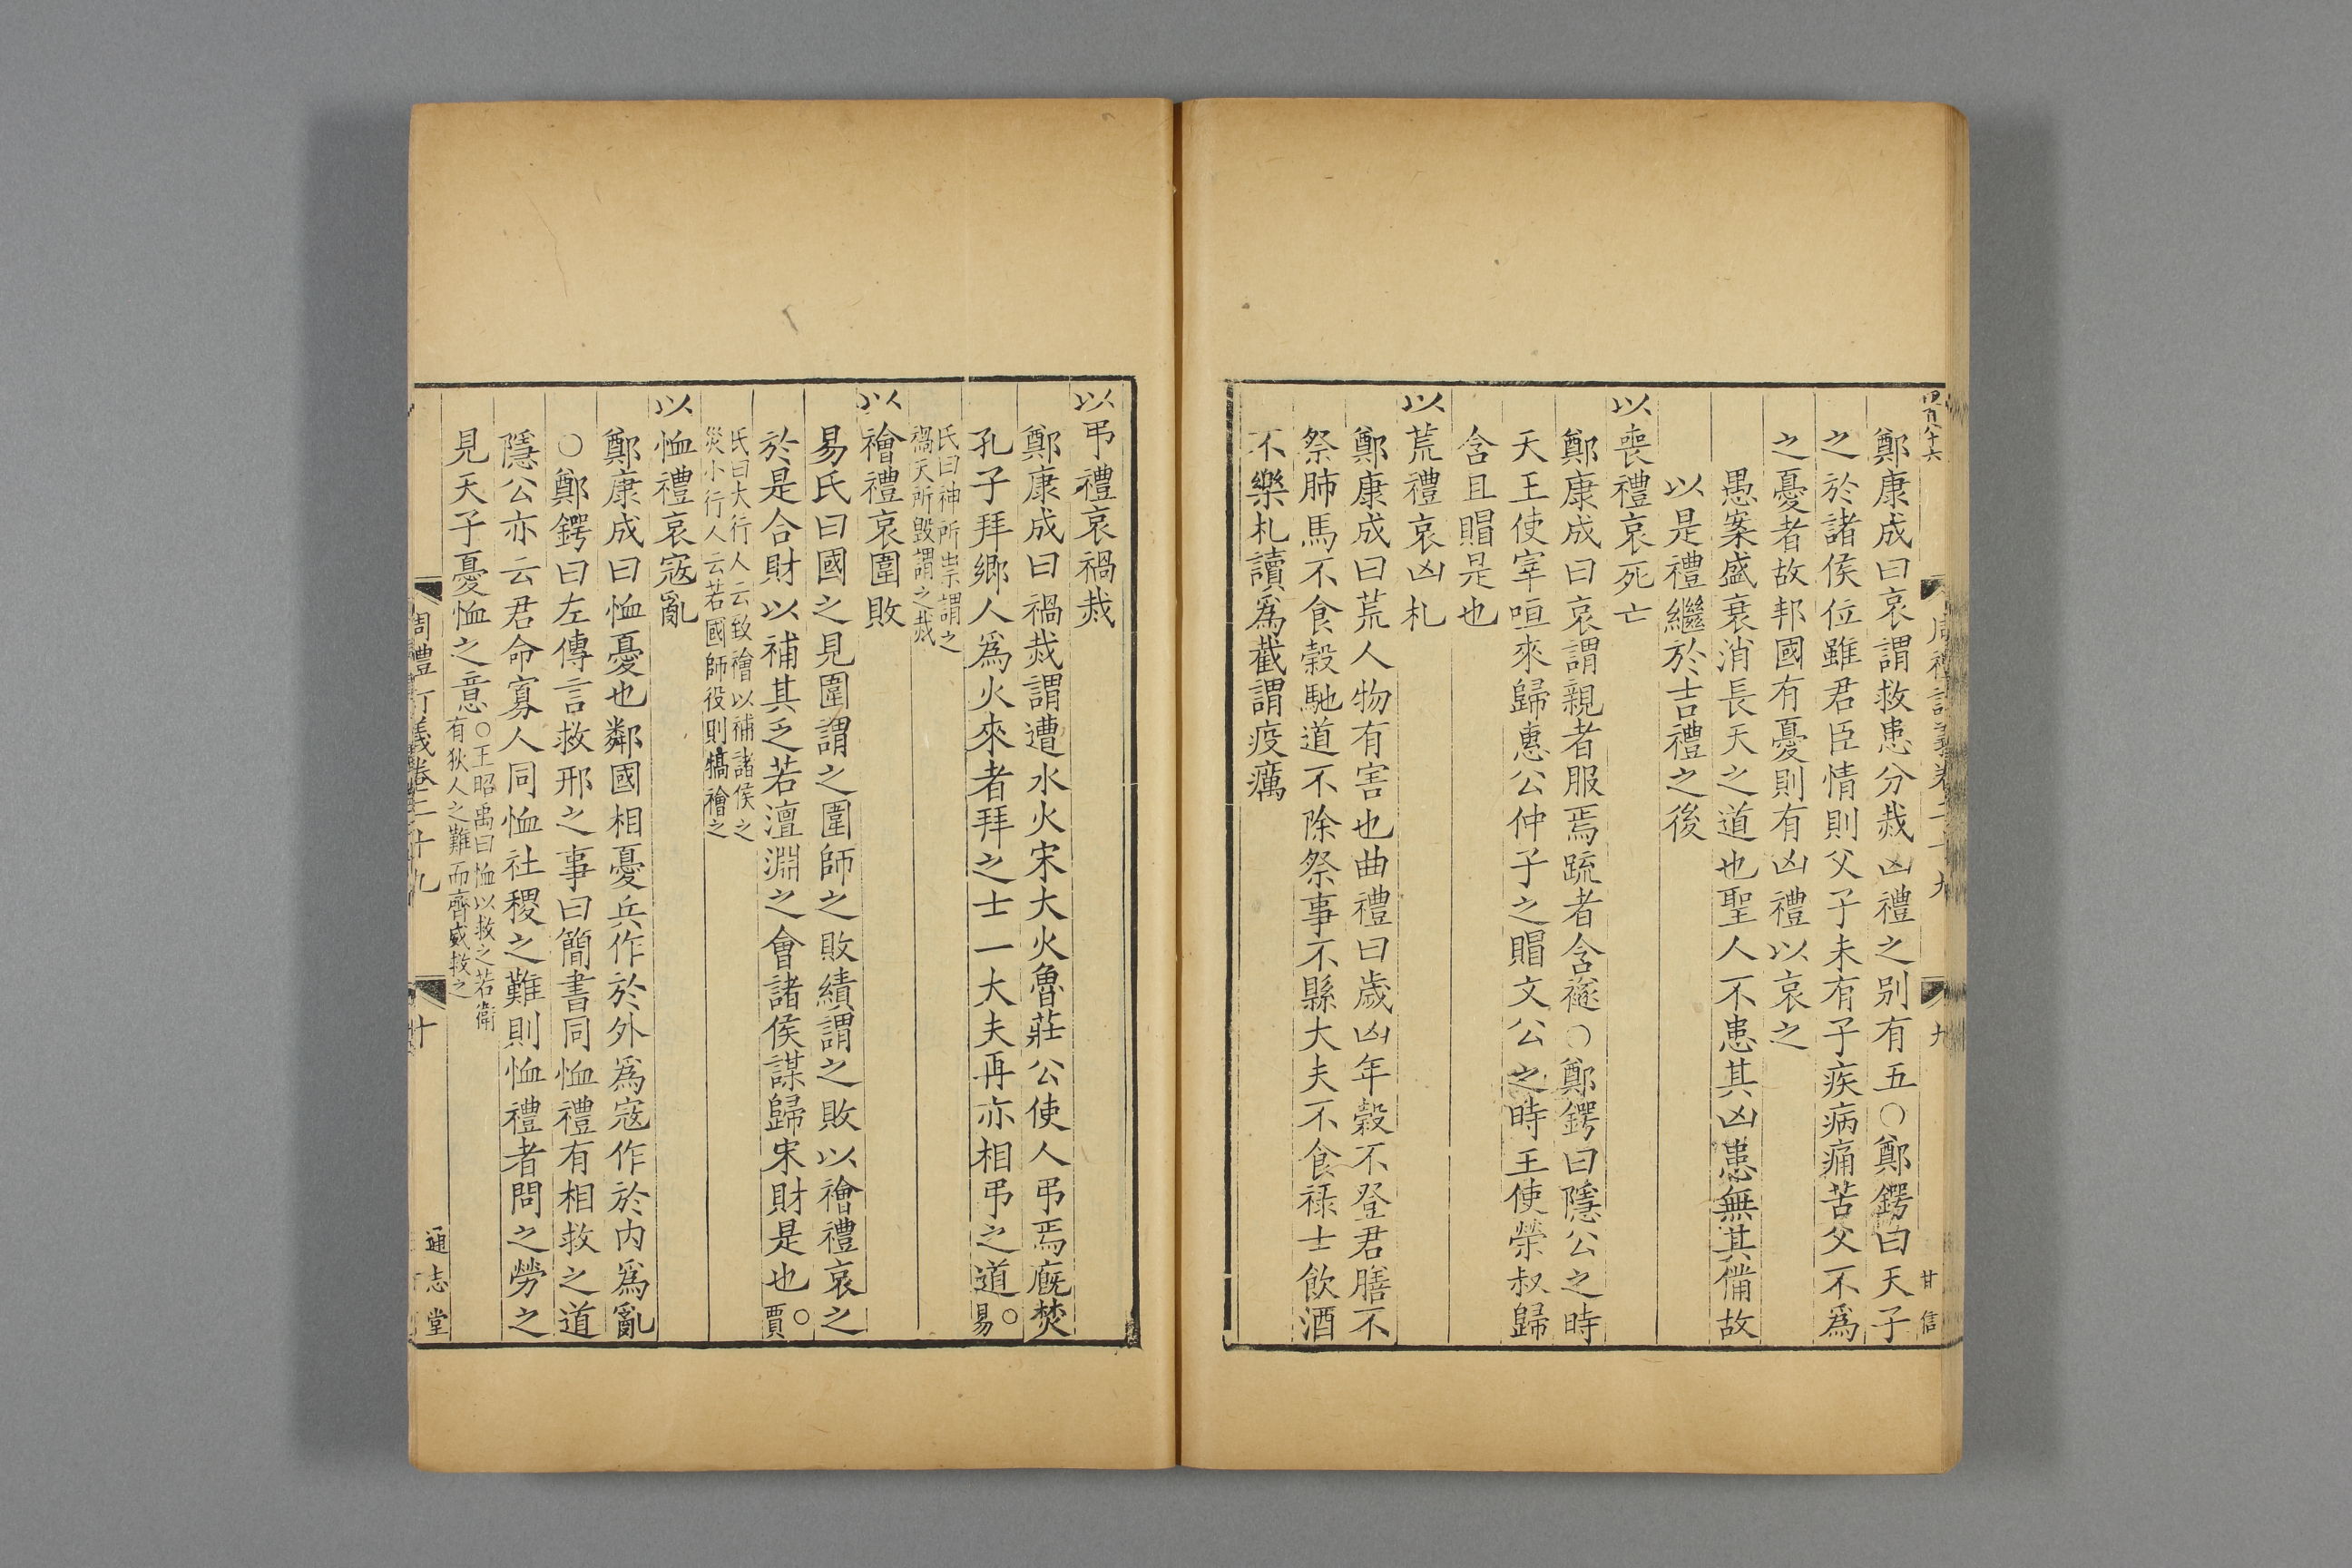 鄭康成曰哀謂救患分烖凶禮之别有五○鄭鍔曰天子
之於諸侯位雖君臣情則父子未有子疾病痛苦父不爲
之憂者故邦國有憂則有凶禮以哀之
愚案盛衰消長天之道也聖人不患其凶患無其備故
以是禮繼於吉禮之後
以喪禮哀死亡
鄭康成曰哀謂親者服焉疏者含襚○鄭鍔曰隱公之時
天王使宰咺來歸惠公仲子之賵文公之時王使榮叔歸
含且賵是也
以荒禮哀凶札
鄭康成曰荒人物有害也曲禮曰歲凶年穀不登君膳不
祭肺馬不食穀馳道不除祭事不縣大夫不食祿士飲酒
不樂札讀爲截謂疫癘
甘信
以弔禮哀禍烖
鄭康成曰禍烖謂遭水火宋大火魯莊公使人弔焉廐焚
孔子拜鄉人爲火來者拜之士一大夫再亦相弔之道○易
氏曰神所祟謂之
禍天所毀謂之烖
以禬禮哀圍敗
易氏曰國之見圍謂之圍師之敗績謂之敗以禬禮哀之
於是合財以補其乏若澶淵之會諸侯謀歸宋財是也○賈
氏曰大行人云致禬以補諸侯之
災小行人云若國師役則犒禬之
以恤禮哀寇亂
鄭康成曰恤憂也鄰國相憂兵作於外爲寇作於内爲亂
○鄭鍔曰左傳言救邢之事曰簡書同恤禮有相救之道
隱公亦云君命寡人同恤社稷之難則恤禮者問之勞之
見天子憂恤之意○王昭禹曰恤以救之若衛
有狄人之難而齊威救之
周禮訂義卷二十九
十
通志堂